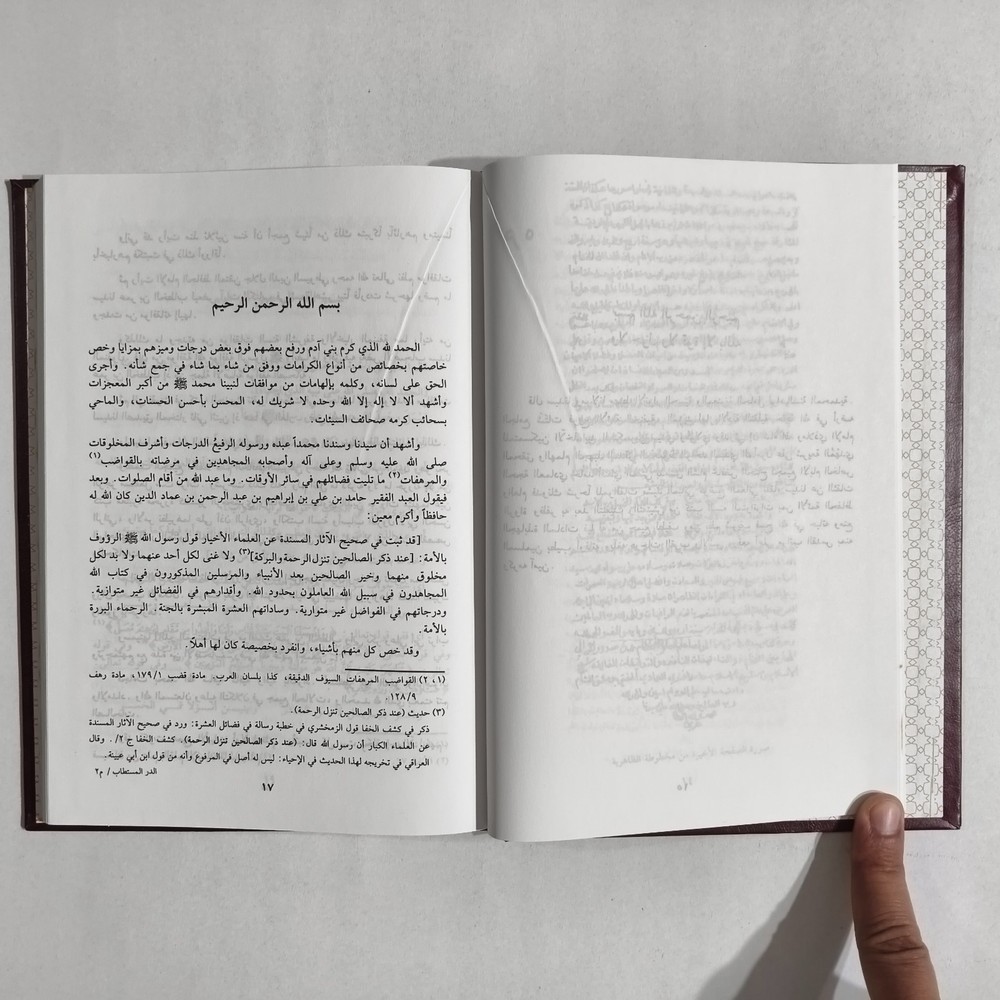 بسم الله الرحمن الرحيم
الحمد لله الذي كرم بني آدم ورفع بعضهم فوق بعض درجات وميزهم بمزايا وخص
خاصتهم بخصائص من أنواع الكرامات ووفق من شاء بما شاء في جمع شأنه. وأجرى
الحق على لسانه، وكلمه بإلهامات من موافقات لنبينا محمد ﷺ من أكبر المعجزات
وأشهد ألا لا إله إلا الله وحده لا شريك له، المحسن بأحسن الحسنات، والماحي
بسحائب كرمه صحائف السيئات.
وأشهد أن سيدنا وسندنا محمداً عبده ورسوله الرفيعُ الدرجات وأشرف المخلوقات
صلى الله عليه وسلم وعلى آله وأصحابه المجاهدين في مرضاته بالقواضب(١)
والمرهفات(٢) ما تليت فضائلهم في سائر الأوقات. وما عبد الله من أقام الصلوات. وبعد
فيقول العبد الفقير حامد بن علي بن إبراهيم بن عبد الرحمن بن عماد الدين كان الله له
حافظاً وأكرم معين:
[قد ثبت في صحيح الآثار المسندة عن العلماء الأخيار قول رسول الله ﷺ الرؤوف
بالأمة: [عند ذكر الصالحين تنزل الرحمة والبركة](٣) ولا غنى لكل أحد عنهما ولا بد لكل
مخلوق منهما وخير الصالحين بعد الأنبياء والمرسلين المذكورون في كتاب الله
المجاهدون في سبيل الله العاملون بحدود الله. وأقدارهم في الفضائل غير متوازية.
ودرجاتهم في الفواضل غير متوارية. وساداتهم العشرة المبشرة بالجنة. الرحماء البررة
بالأمة.
وقد خص كل منهم بأشياء، وانفرد بخصيصة كان لها أهلاً.
(١، ٢) القواضب المرهفات السيوف الدقيقة، كذا بلسان العرب. مادة قضب ١٧٩/١، مادة رهف
١٢٨/٩.
(٣) حديث (عند ذكر الصالحين تنزل الرحمة).
ذكر في كشف الخفا قول الزمخشري في خطبة رسالة في فضائل العشرة: ورد في صحيح الآثار المسندة
عن العلماء الكبار أن رسول الله قال: (عند ذكر الصالحين تنزل الرحمة). كشف الخفا ج ٢/ . وقال
العراقي في تخريجه لهذا الحديث في الإحياء: ليس له أصل في المرفوع وأنه من قول ابن أبي عيينة.
الدر المستطاب / م٢
١٧